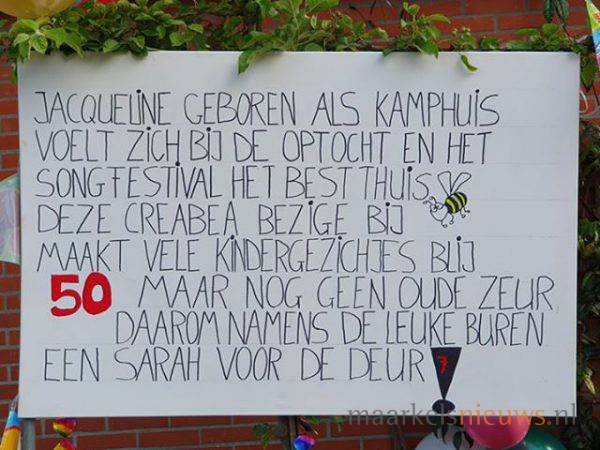 JACQUELINE GEBOREN ALS KAMPHUIS
VOELT ZICH BIJ DE OPTOCHT EN HET
SONGFESTIVAL HET BEST THUIS
DEZE CREABEA BEZIGE BIJ
MAAKT VELE KINDERGEZICHJES BLIJ
50 MAAR NOG GEEN OUDE ZEUR
DAAROM NAMENS DE LEUKE BUREN
EEN SARAH VOOR DE DEUR
7
maarkelsnieuws.nl